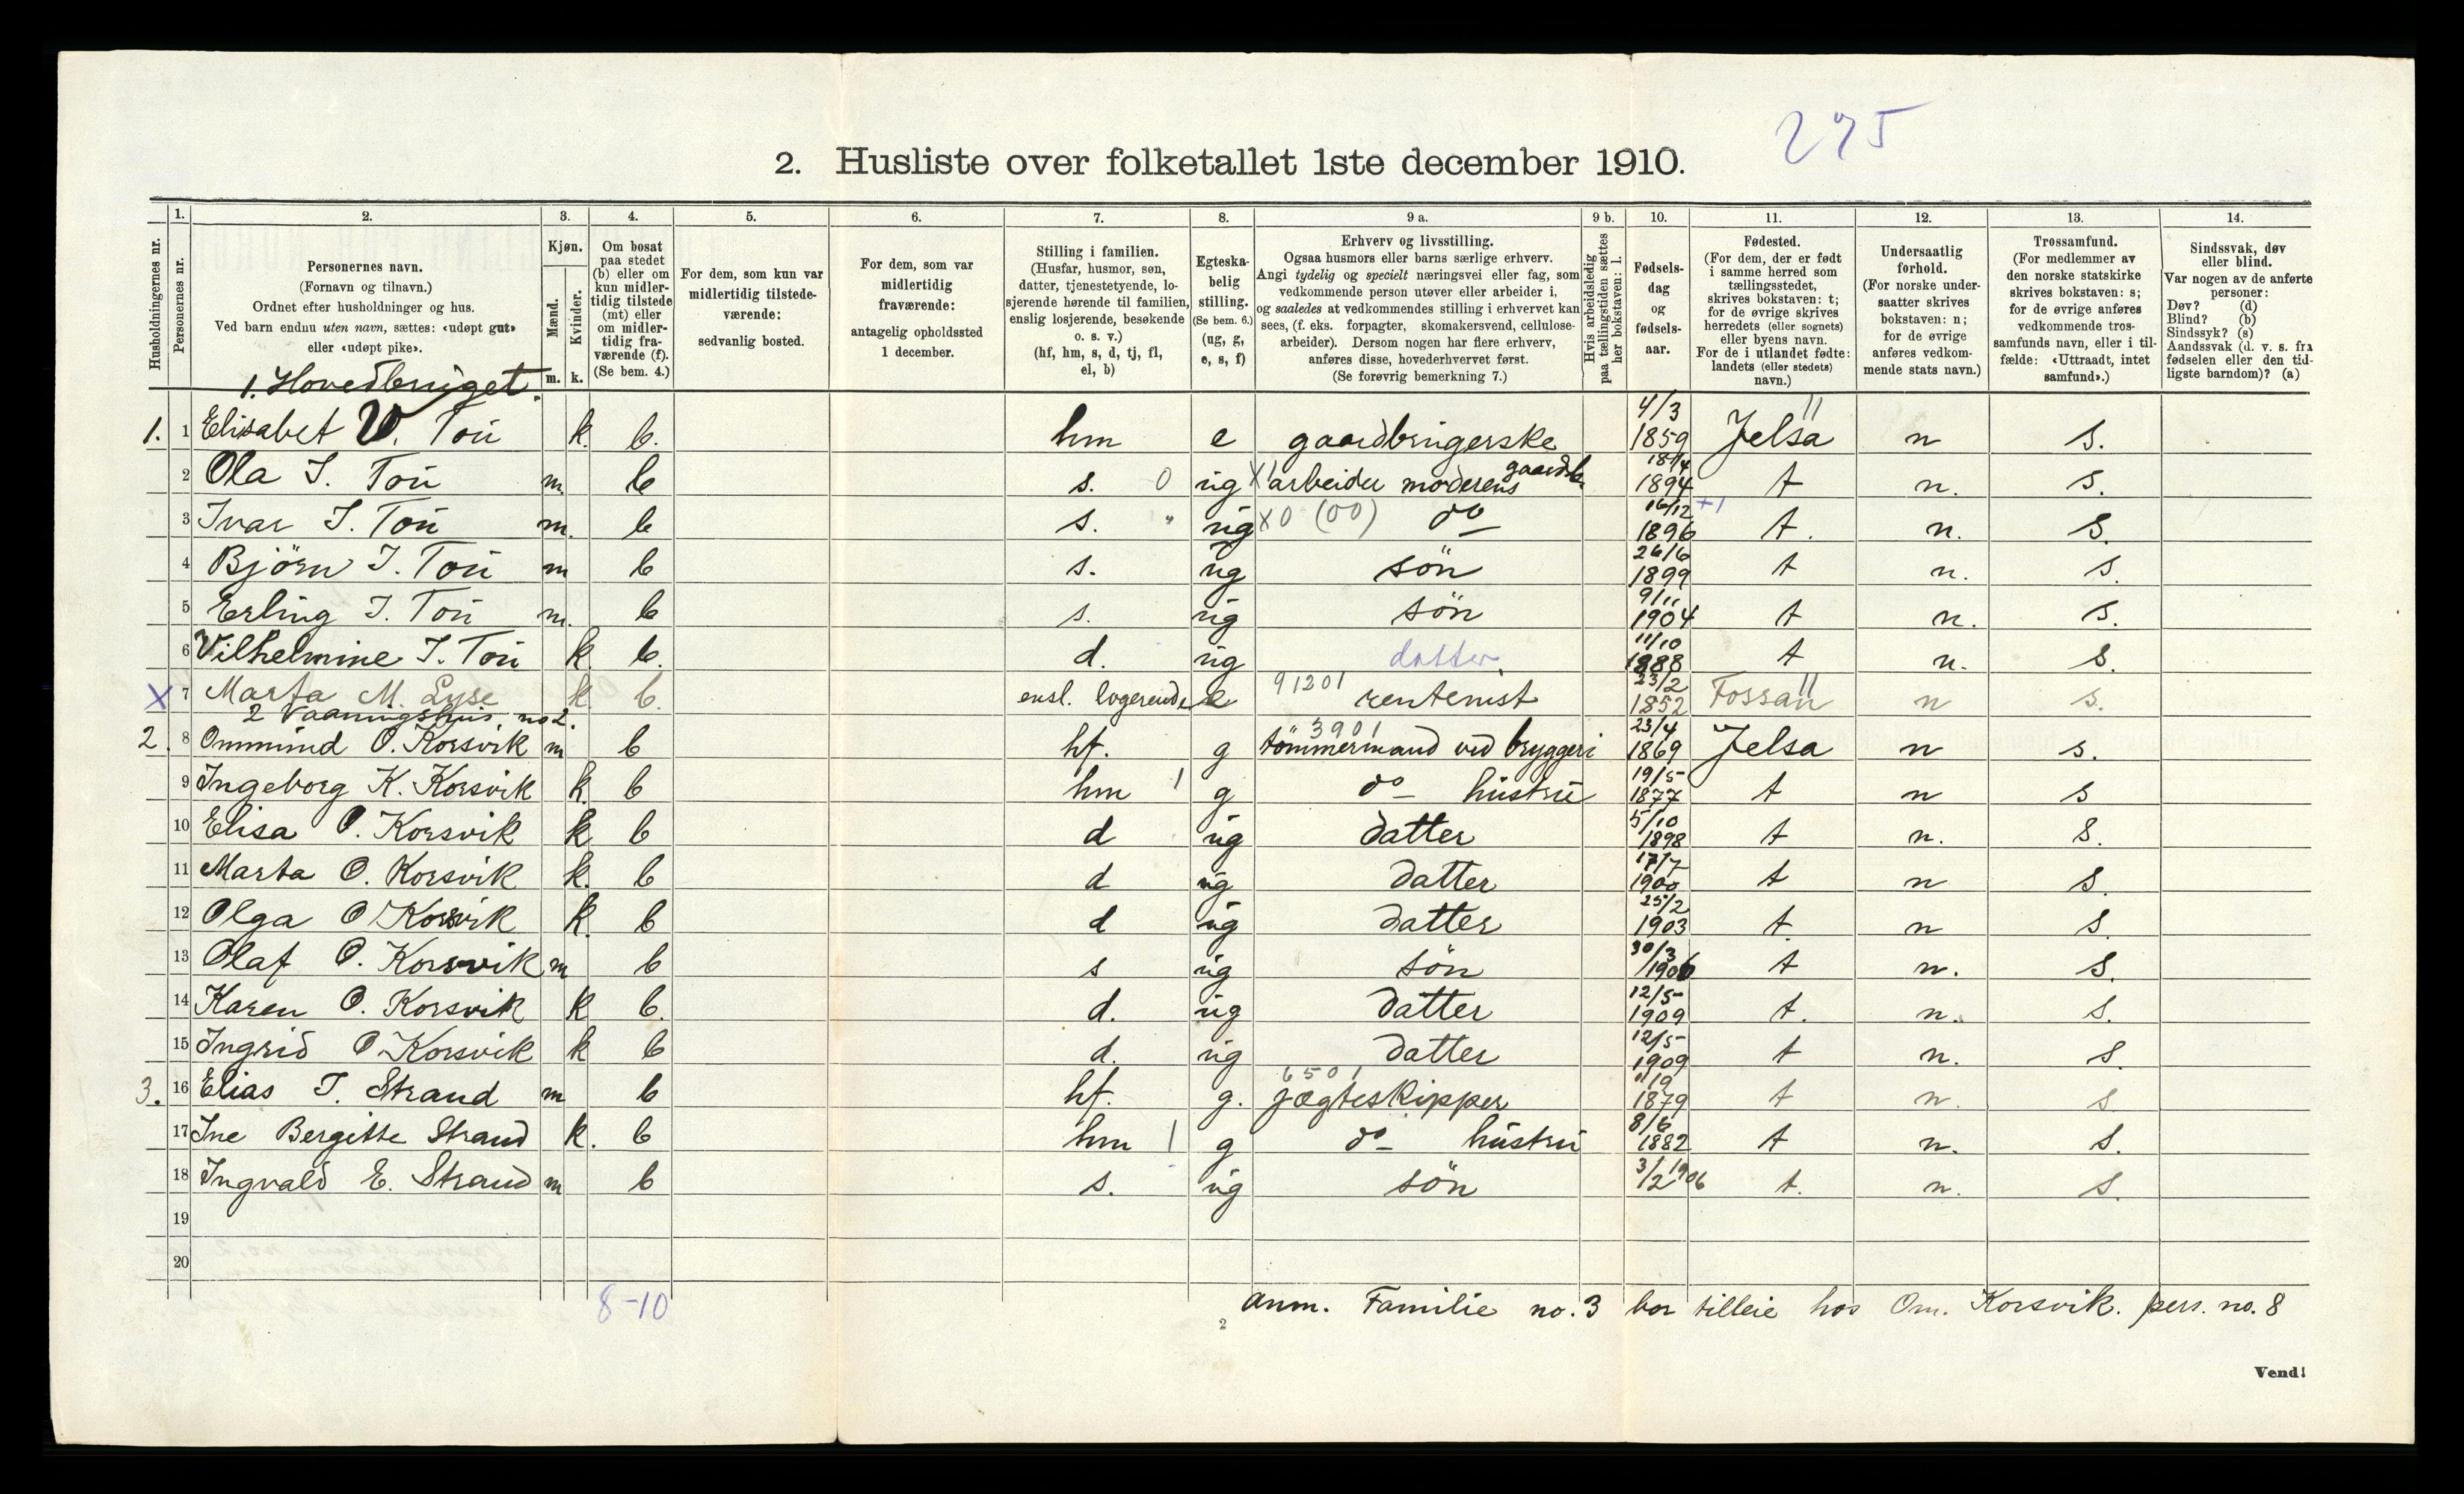 275
2. Husliste over folketallet 1ste december 1910.
1. 2. 3. 4. 5. 6. 7. 8. 9 a. 9 b. 10. 11. 12. 13. 14.
Husholdningernes nr.
Personernes nr.
Personernes navn.
(Fornavn og tilnavn.)
Ordnet efter husholdninger og hus.
Ved barn endnu uten navn, sættes: «udøpt gut»
eller «udøpt pike».
Kjøn.
Mænd.
Kvinder.
m. k.
Om bosat
paa stedet
(b) eller om
kun midler-
tidig tilstede
(mt) eller
om midler-
tidig fra-
værende (f).
(Se bem. 4.)
For dem, som kun var
midlertidig tilstede-
værende:
sedvanlig bosted.
For dem, som var
midlertidig
fraværende:
antagelig opholdssted
1 december.
Stilling i familien.
(Husfar, husmor, søn,
datter, tjenestetyende, lo-
sjerende hørende til familien,
enslig losjerende, besøkende
o. s. v.)
(hf, hm, s, d, tj, fl,
el, b)
Egteska-
belig
stilling.
(Se bem. 6.)
(ug, g,
e, s, f)
Erhverv og livsstilling.
Ogsaa husmors eller barns særlige erhverv.
Angi tydelig og specielt næringsvei eller fag, som
vedkommende person utøver eller arbeider i,
og saaledes at vedkommendes stilling i erhvervet kan
sees, (f. eks. forpagter, skomakersvend, cellulose-
arbeider). Dersom nogen har flere erhverv,
anføres disse, hovederhvervet først.
(Se forøvrig bemerkning 7.)
Hvis arbeidsledig
paa tællingstiden sættes
her bokstaven: l.
Fødsels-
dag
og
fødsels-
aar.
Fødested.
(For dem, der er født
i samme herred som
tællingsstedet,
skrives bokstaven: t;
for de øvrige skrives
herredets (eller sognets)
eller byens navn.
For de i utlandet fødte:
landets (eller stedets)
navn.)
Undersaatlig
forhold.
(For norske under-
saatter skrives
bokstaven: n;
for de øvrige
anføres vedkom-
mende stats navn.)
Trossamfund.
(For medlemmer av
den norske statskirke
skrives bokstaven: s;
for de øvrige anføres
vedkommende tros-
samfunds navn, eller i til-
fælde: «Uttraadt, intet
samfund».)
Sindssvak, døv
eller blind.
Var nogen av de anførte
personer:
Døv? (d)
Blind? (b)
Sindssyk? (s)
Aandssvak (d. v. s. fra
fødselen eller den tid-
ligste barndom)? (a)
1. Hovedbruget.
1. 1 Elisabet V. Tou k. b. hm e gaardbrugerske 4/3 1859 Jelsa n s.
2 Ola I. Tou m. b s. 0 ug X arbeider moderens gaardb. 18/4 1894 t n. s.
3 Ivar I. Tou m. b s. " ug X0 (00) do 16/12 1896 +1 t. n. s.
4 Bjørn I. Tou m b s. ug søn 26/6 1899 t n. s.
5 Erling I. Tou m. b s. ug søn 9/11 1904 t n. s.
6 Vilhelmine I. Tou k. b. d. ug datter 11/10 1888 t n. s.
X 7 Marta M. Lyse k. b. ensl. logerende e 91201 rentenist 23/2 1852 Fossan n s.
2 Vaaningshus, no 2.
2. 8 Ommund O. Korsvik m b hf. g 3901 tømmermand ved bryggeri 23/4 1869 Jelsa n s.
9 Ingeborg K. Korsvik k. b hm 1 g do hustru 19/5 1877 t n s
10 Elisa O. Korsvik k b d ug datter 5/10 1898 t n. s.
11 Marta O. Korsvik k. b d ug datter 17/7 1900 t n s.
12 Olga O Korsvik k. b d ug datter 25/2 1903 t. n s.
13 Olaf O. Korsvik m b s ug søn 30/3 1906 t n. s.
14 Karen O. Korsvik k b. d. ug datter 12/5 1909 t. n. s.
15 Ingrid O Korsvik k b d. ug datter 12/5 1909 t n. s
3. 16 Elias T. Strand m b hf. g. 6501 jægteskipper 1879 t n. s
17 Ine Bergitte Strand k. b hm 1 g do hustru 8/6 1882 t n. s.
18 Ingvald E. Strand m b s. ug søn 3/2 1906 t. n. s.
19
20
8-10
Anm. Familie no. 3 bor tilleie hos Om. Korsvik. pers. no. 8
2
Vend!